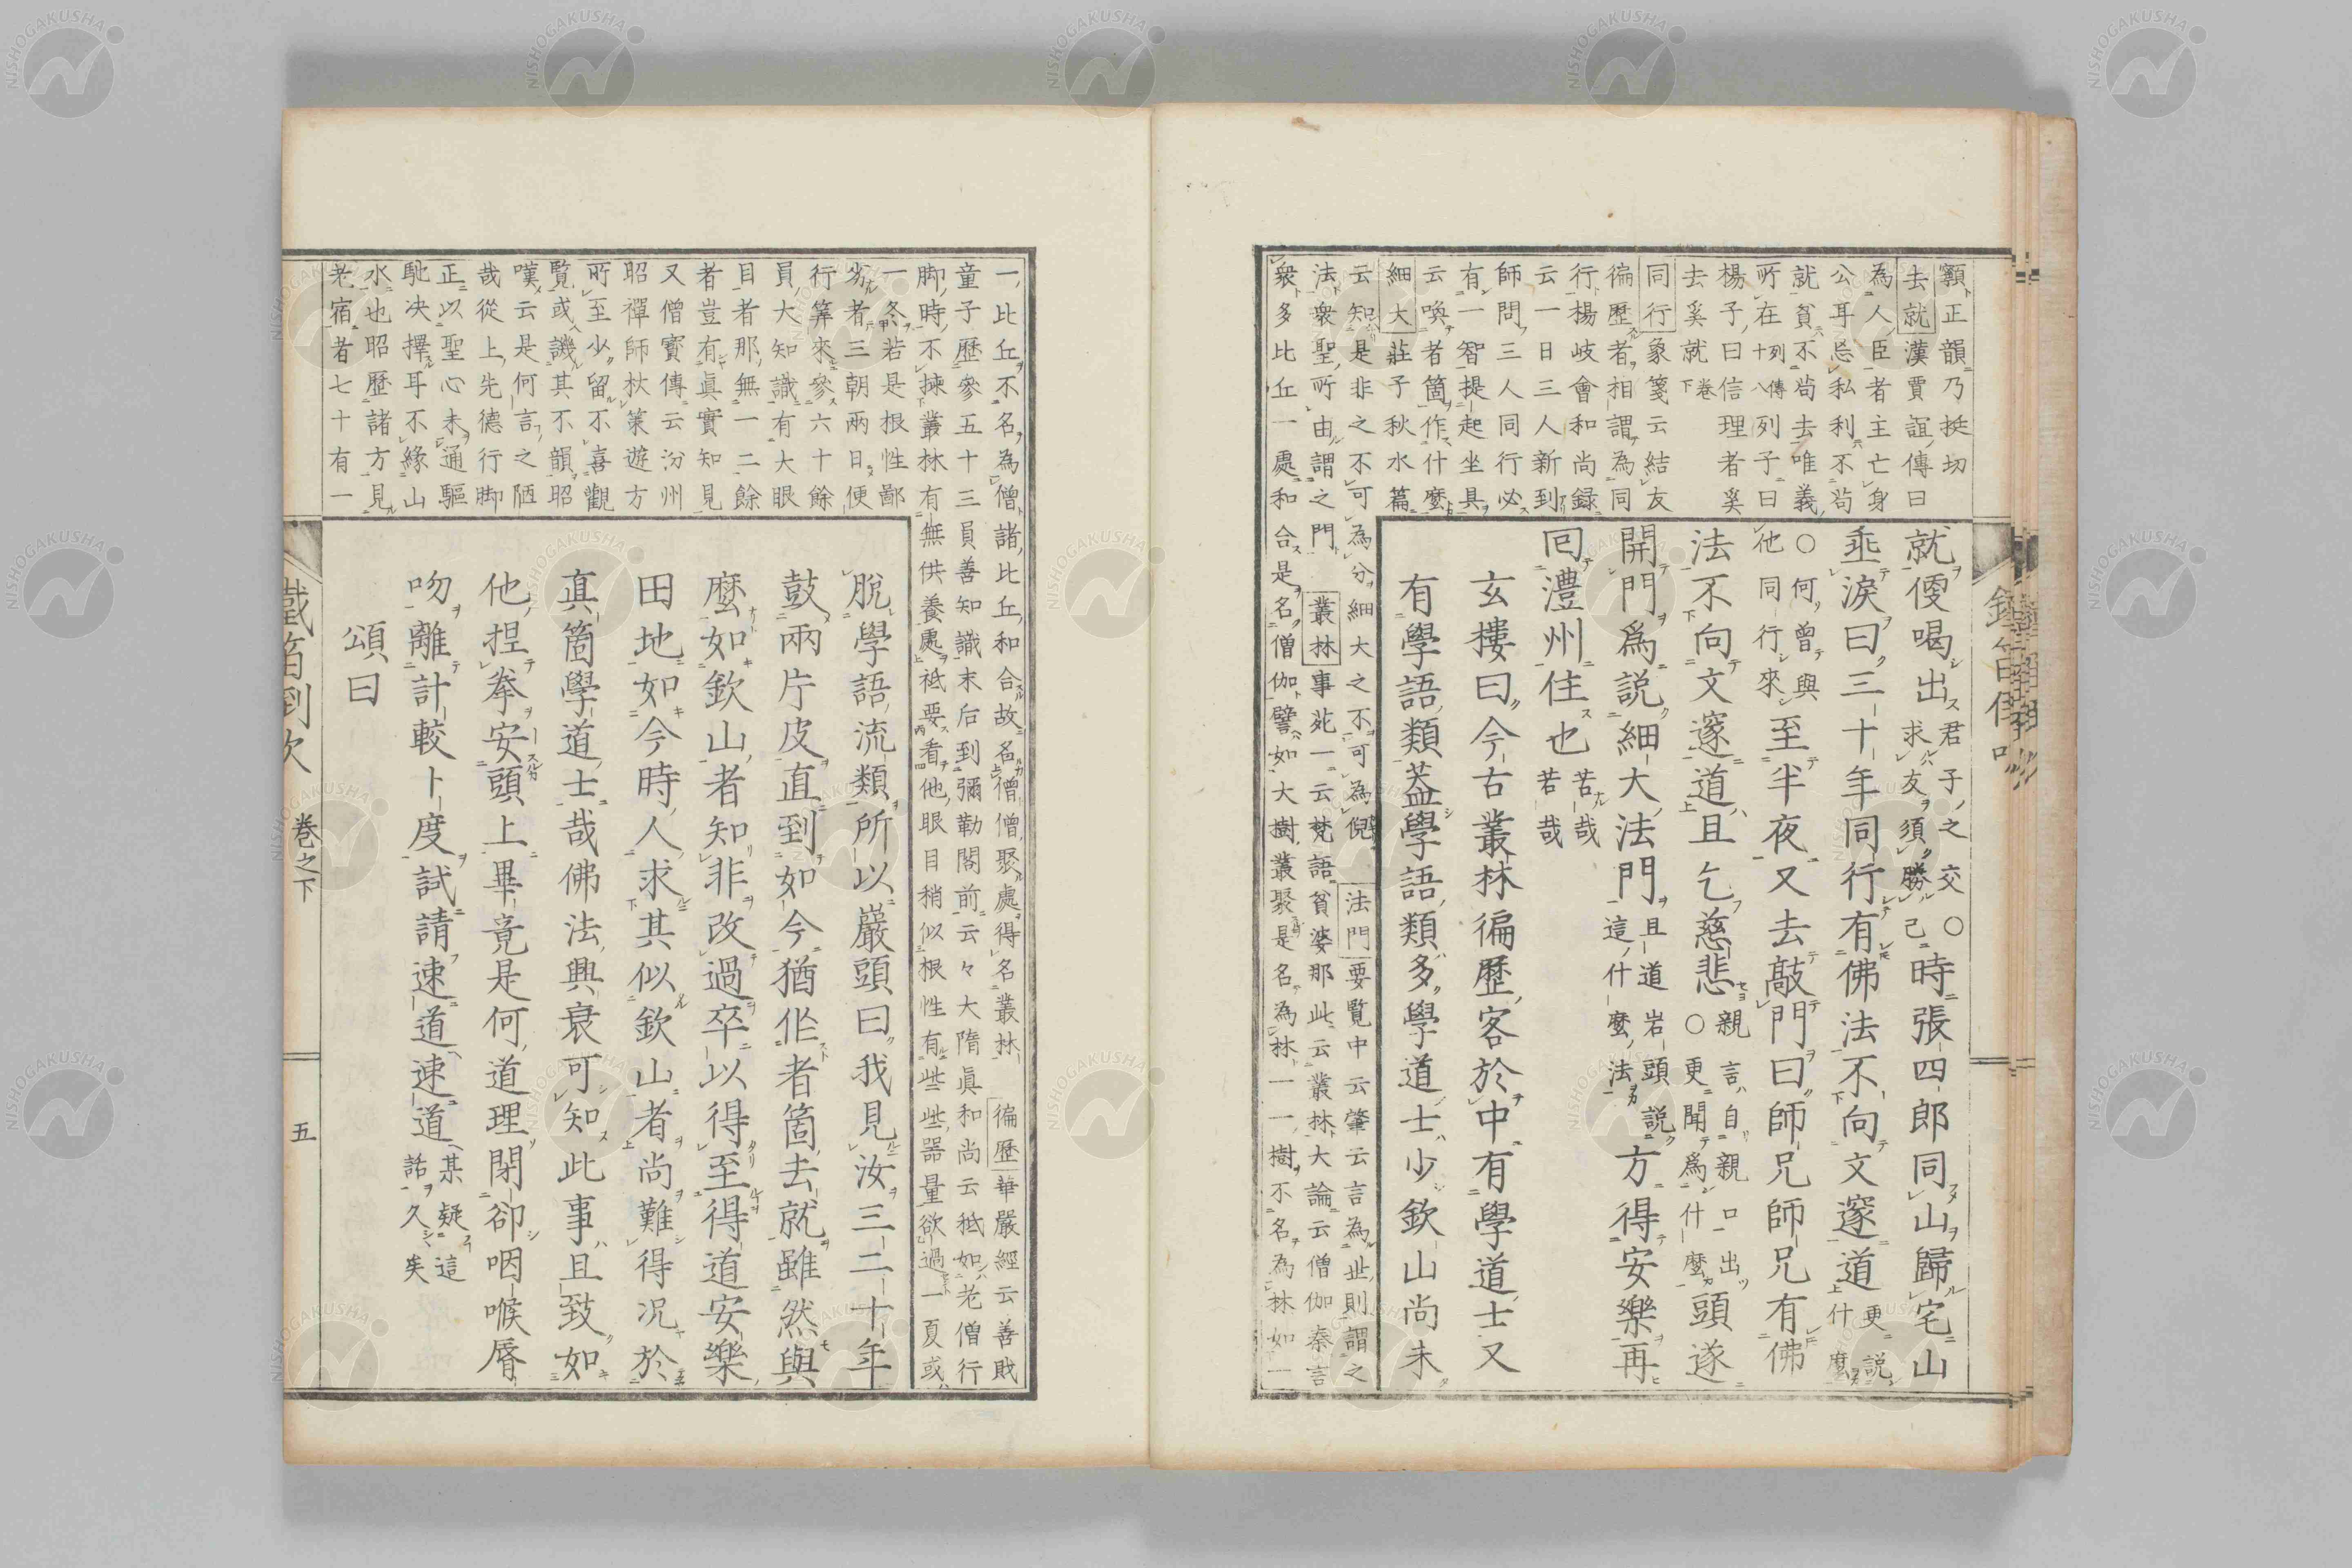 顙正韻乃挺切
去就漢賈誼傳曰
為人臣者主亡身
公耳忘私利不苟
就貧不苟去唯義
所在列傳十八列子曰
楊子曰信理者奚
去奚就下卷
同行象箋云結友
徧歷者相謂為同
行楊岐會和尚録
云一日三人新到
師問三人同行必
有一智提起坐具
云喚者箇作什麼
細大莊子秋水篇
云知是非之不可為分細大之不可為倪 法門要覽中云肇云言為世則謂之
法衆聖所由謂之門 叢林事苑一云梵語貧婆那此云叢林大論云僧伽秦言
衆多比丘一處和合是名僧伽譬如大樹叢聚是名為林一一樹不名為林如一
就便喝出君子之交求友須勝己○時張四郎同山歸宅山
垂淚曰三十年同行有佛法不向文邃道更説什麼
○何曾與他同行來至半夜又去敲門曰師兄師兄有佛
法不向文邃道且乞慈悲親言自親口出○更聞爲什麼頭遂
開門爲説細大法門且道岩頭説這什麼法方得安樂再
回澧州住也苦哉苦哉
玄樓曰今古叢林徧歷客於中有學道士又
有學語類葢學語類多學道士少欽山尚未
鐵笛倒吹
一比丘不名為僧諸比丘和合故名僧僧聚處得名叢林 徧歷華嚴經云善財
童子歷參五十三員善知識末后到彌勒閣前云々大隋眞和尚云秖如老僧行
脚時不揀叢林有無供養處秖要看他眼目稍似根性有些些器量欲過一夏或
一冬若是根性鄙
劣者三朝兩日便
行筭來參六十餘
員大知識有大眼
目者那無一二餘
者豈有眞實知見
又僧寶傳云汾州
昭禪師杖策遊方
所至少留不喜觀
覽或譏其不韻昭
嘆云是何言之陋
哉從上先德行脚
正以聖心未通驅
馳决擇耳不緣山
水也昭歷諸方見
老宿者七十有一
脫學語流類所以巖頭曰我見汝三二十年
鼓兩片皮直到如今猶作者箇去就雖然與
麼如欽山者知非改過卒以得至得道安樂
田地如今時人求其似欽山者尚難得况於
眞箇學道士哉佛法興衰可知此事且致如
他捏拳安頭上畢竟是何道理閉卻咽喉脣
吻離計較卜度試請速道速道某疑這話久矣
頌曰
鐵笛倒吹 卷之下 五